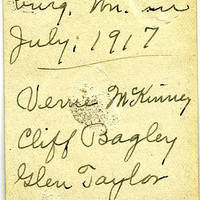 burg, Mn. in
July, 1917
Verne McKinney
Cliff Bagley
Glen Taylor